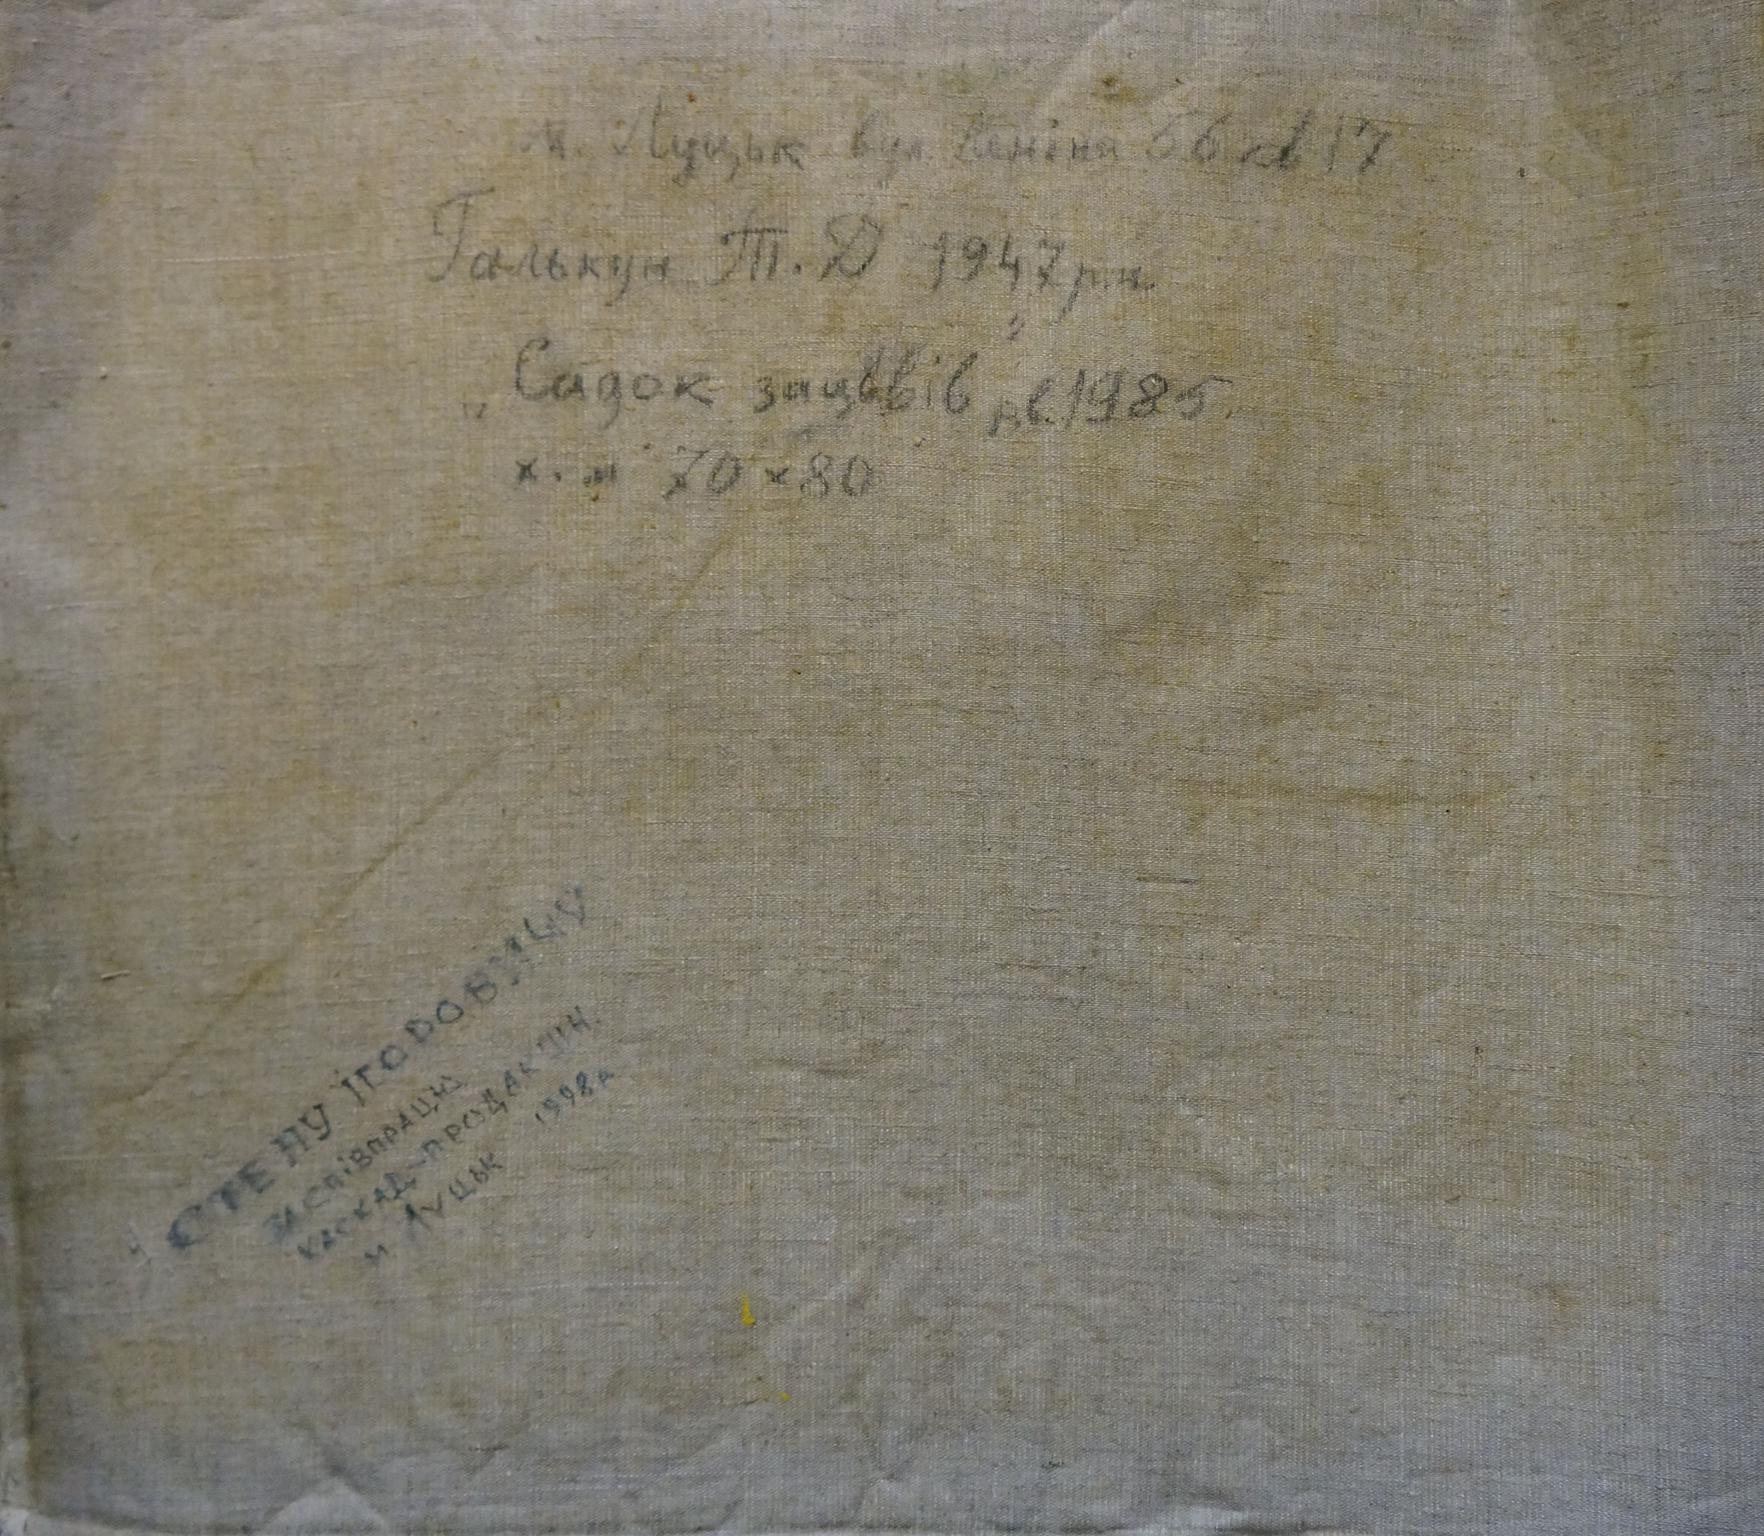 м. Луцьк вул. Леніна 66 кв 17
Галькун Т. Д 1947 р.н.
„Садок зацввів" 1985.
х. м 70 × 80
СТЕПУ ІГОРОВИЧУ
ЗАСПІВПРАЦЮ
КАСКАД-ПРОДАКШН.
м ЛУЦЬК 1998